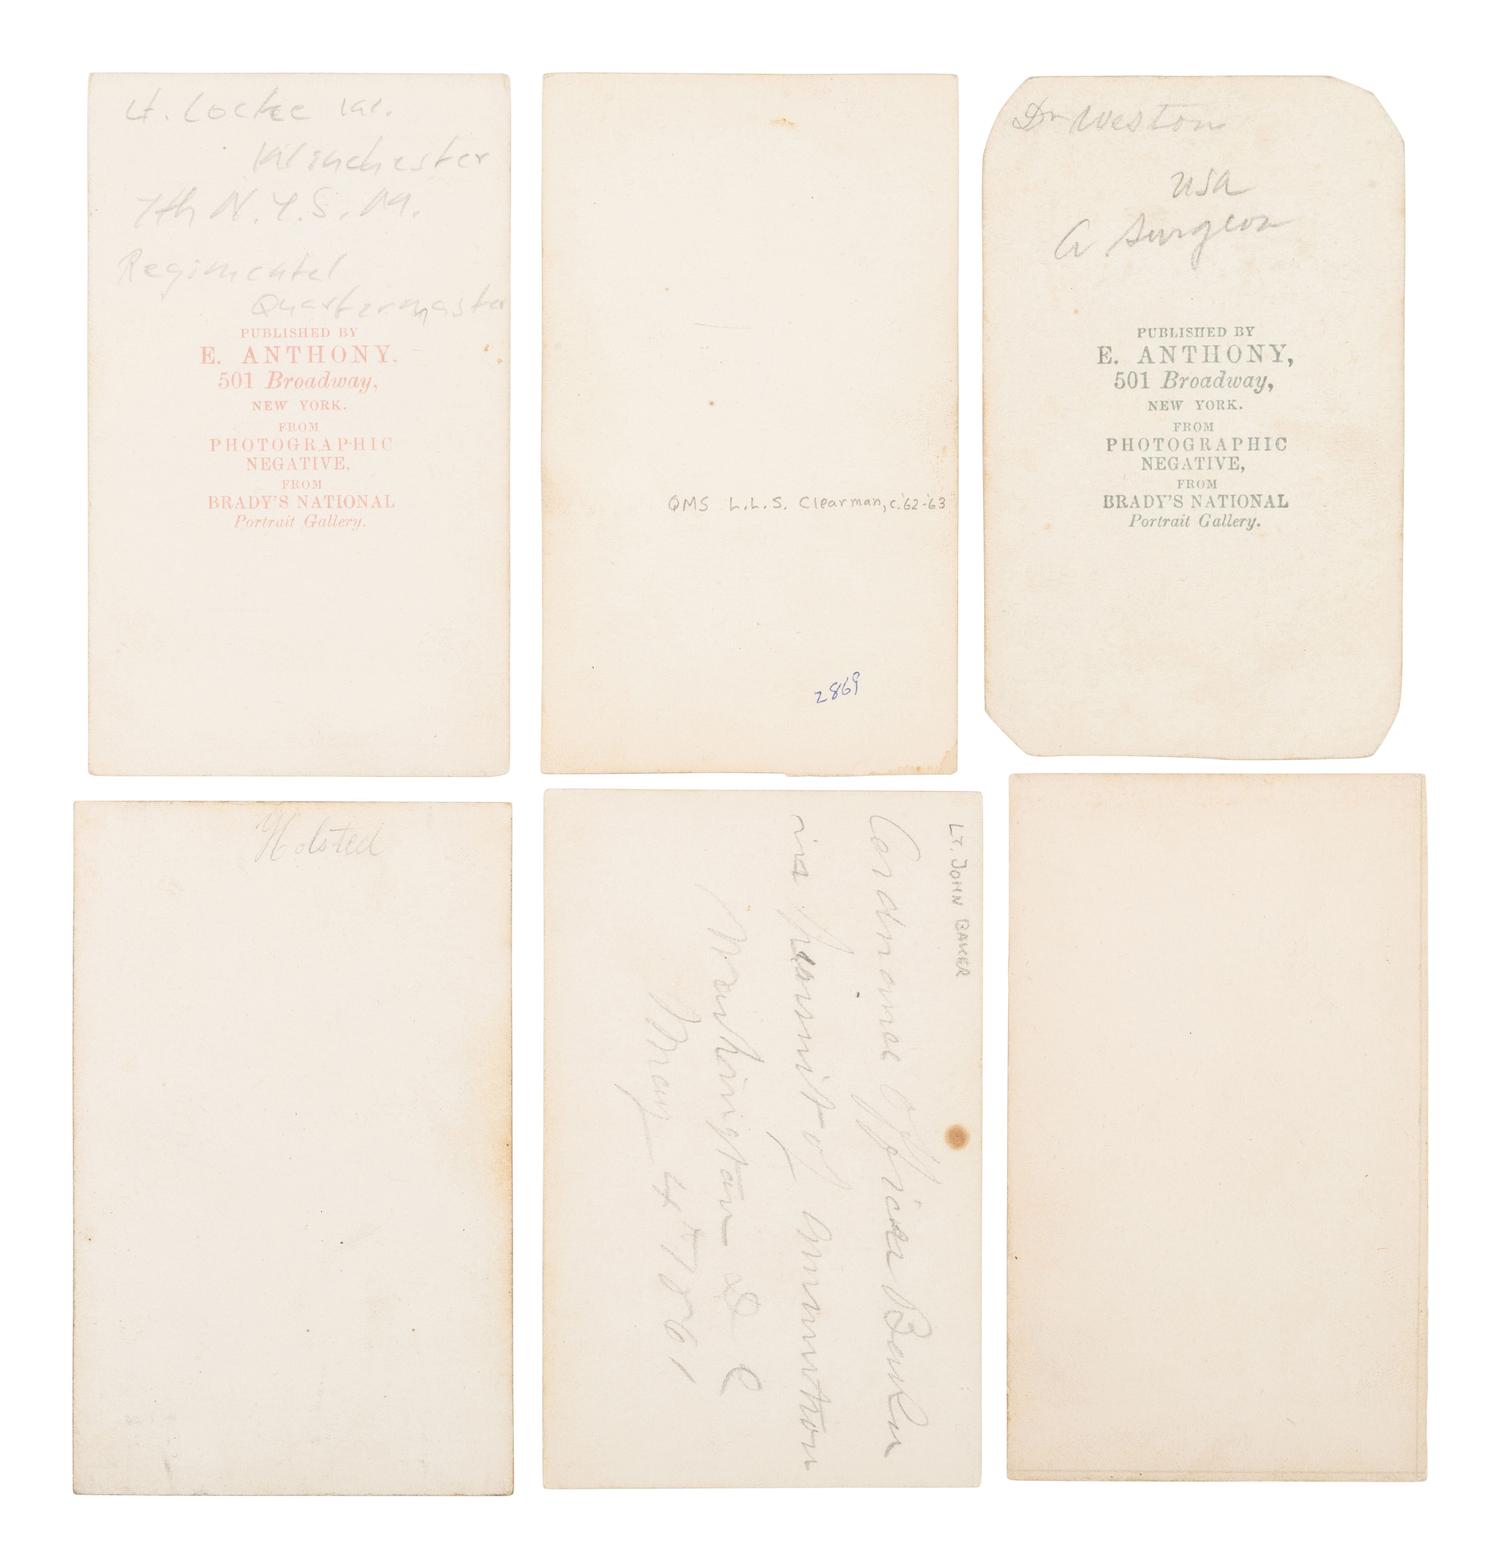 Lt. Locke W.
Winchester
7th N.Y.S.M.
Regimental
Quartermaster
PUBLISHED BY
E. ANTHONY.
501 Broadway,
NEW YORK.
FROM
PHOTOGRAPHIC
NEGATIVE,
FROM
BRADY'S NATIONAL
Portrait Gallery.
QMS L.L.S. Clearman, c.'62-'63
2869
Dr Weston
USA
A Surgeon
PUBLISHED BY
E. ANTHONY,
501 Broadway,
NEW YORK.
FROM
PHOTOGRAPHIC
NEGATIVE,
FROM
BRADY'S NATIONAL
Portrait Gallery.
Holsted
LT. JOHN BAKER
Ordnance Officer Baker
in pursuit of Ammunition
Washington D C
May 1861